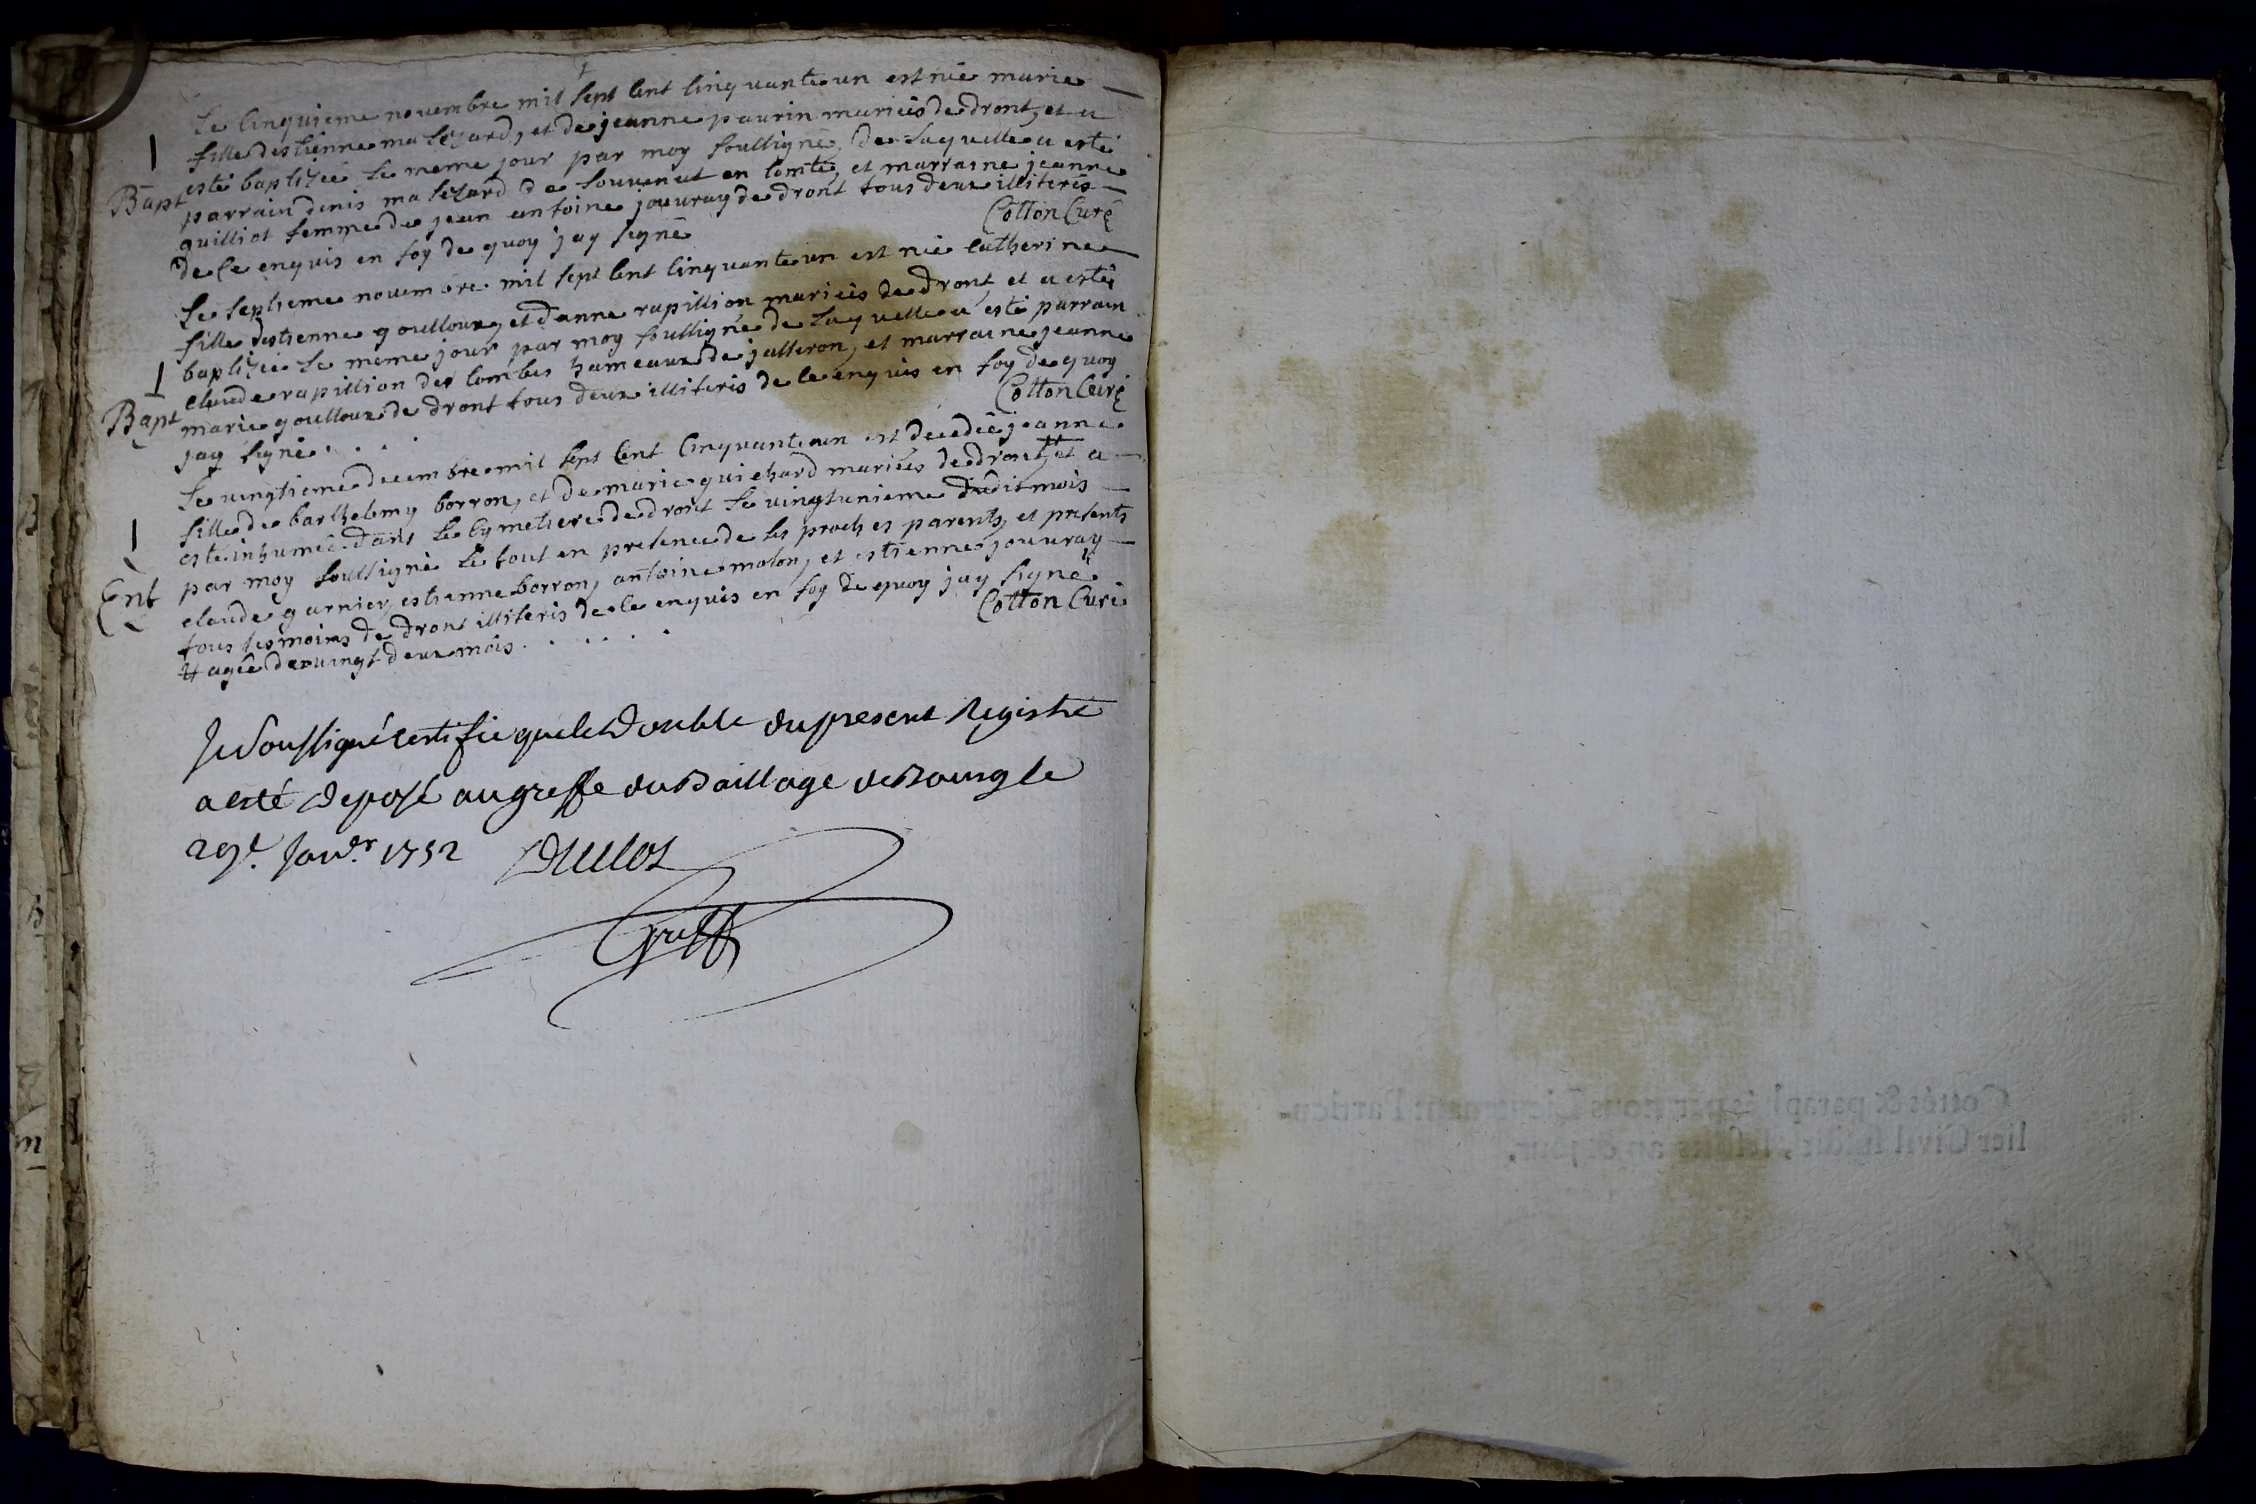 Le cinquieme novembre mil sept cent cinquante un est née marie
fille destienne malézard, et de jeanne paurin mariés de dront, et a
1
esté baptizée le meme jour par moy soussigné, de laquelle a esté
Bapt parrain denis malezard de louvenat en comté, et marraine jeanne
guilliot femme de jean antoine jouvray de dront tous deux illiterés
de ce enquis en foy de quoy jay signé
Cotton Curé
Le septieme novembre mil sept cent cinquante un est née catherine
fille destienne goulloux, et d'anne rapillion mariés de dront, et a esté
baptizée le meme jour par moy soussigné de laquelle a esté parrain
1
claude rapillion des combes hameaux de jasseron, et marraine jeanne
Bapt marie goulloux de dront tous deux illiterés de ce enquis en foy de quoy
jay signé . . .
Cotton Curé
Le vingtieme decembre mil sept cent cinquante un est decedée jeanne
fille de barthelemy borron, et de marie guichard mariés de dront, et a
1
esté inhumée dans le cymetiere de dront le vingtunieme dudit mois
par moy soussigné le tout en presence de ses proches parents, et presents
Ent claude garnier, estienne borron, antoine molon, et estienne jouvray
tous tesmoins de dront illiterés de ce enquis en foy de quoy jay signé
agée de vingt deux mois . . . . .
Cotton Curé
Je Soussigné certifie que le Double du present Registre
a esté Deposé au greffe du Baillage de Bourg le
29e. Janver 1752 Duclos
Greff
Cottés & paraphés par nous Lieutenant Particu-
lier Civil susdit, lesdits an & jour.